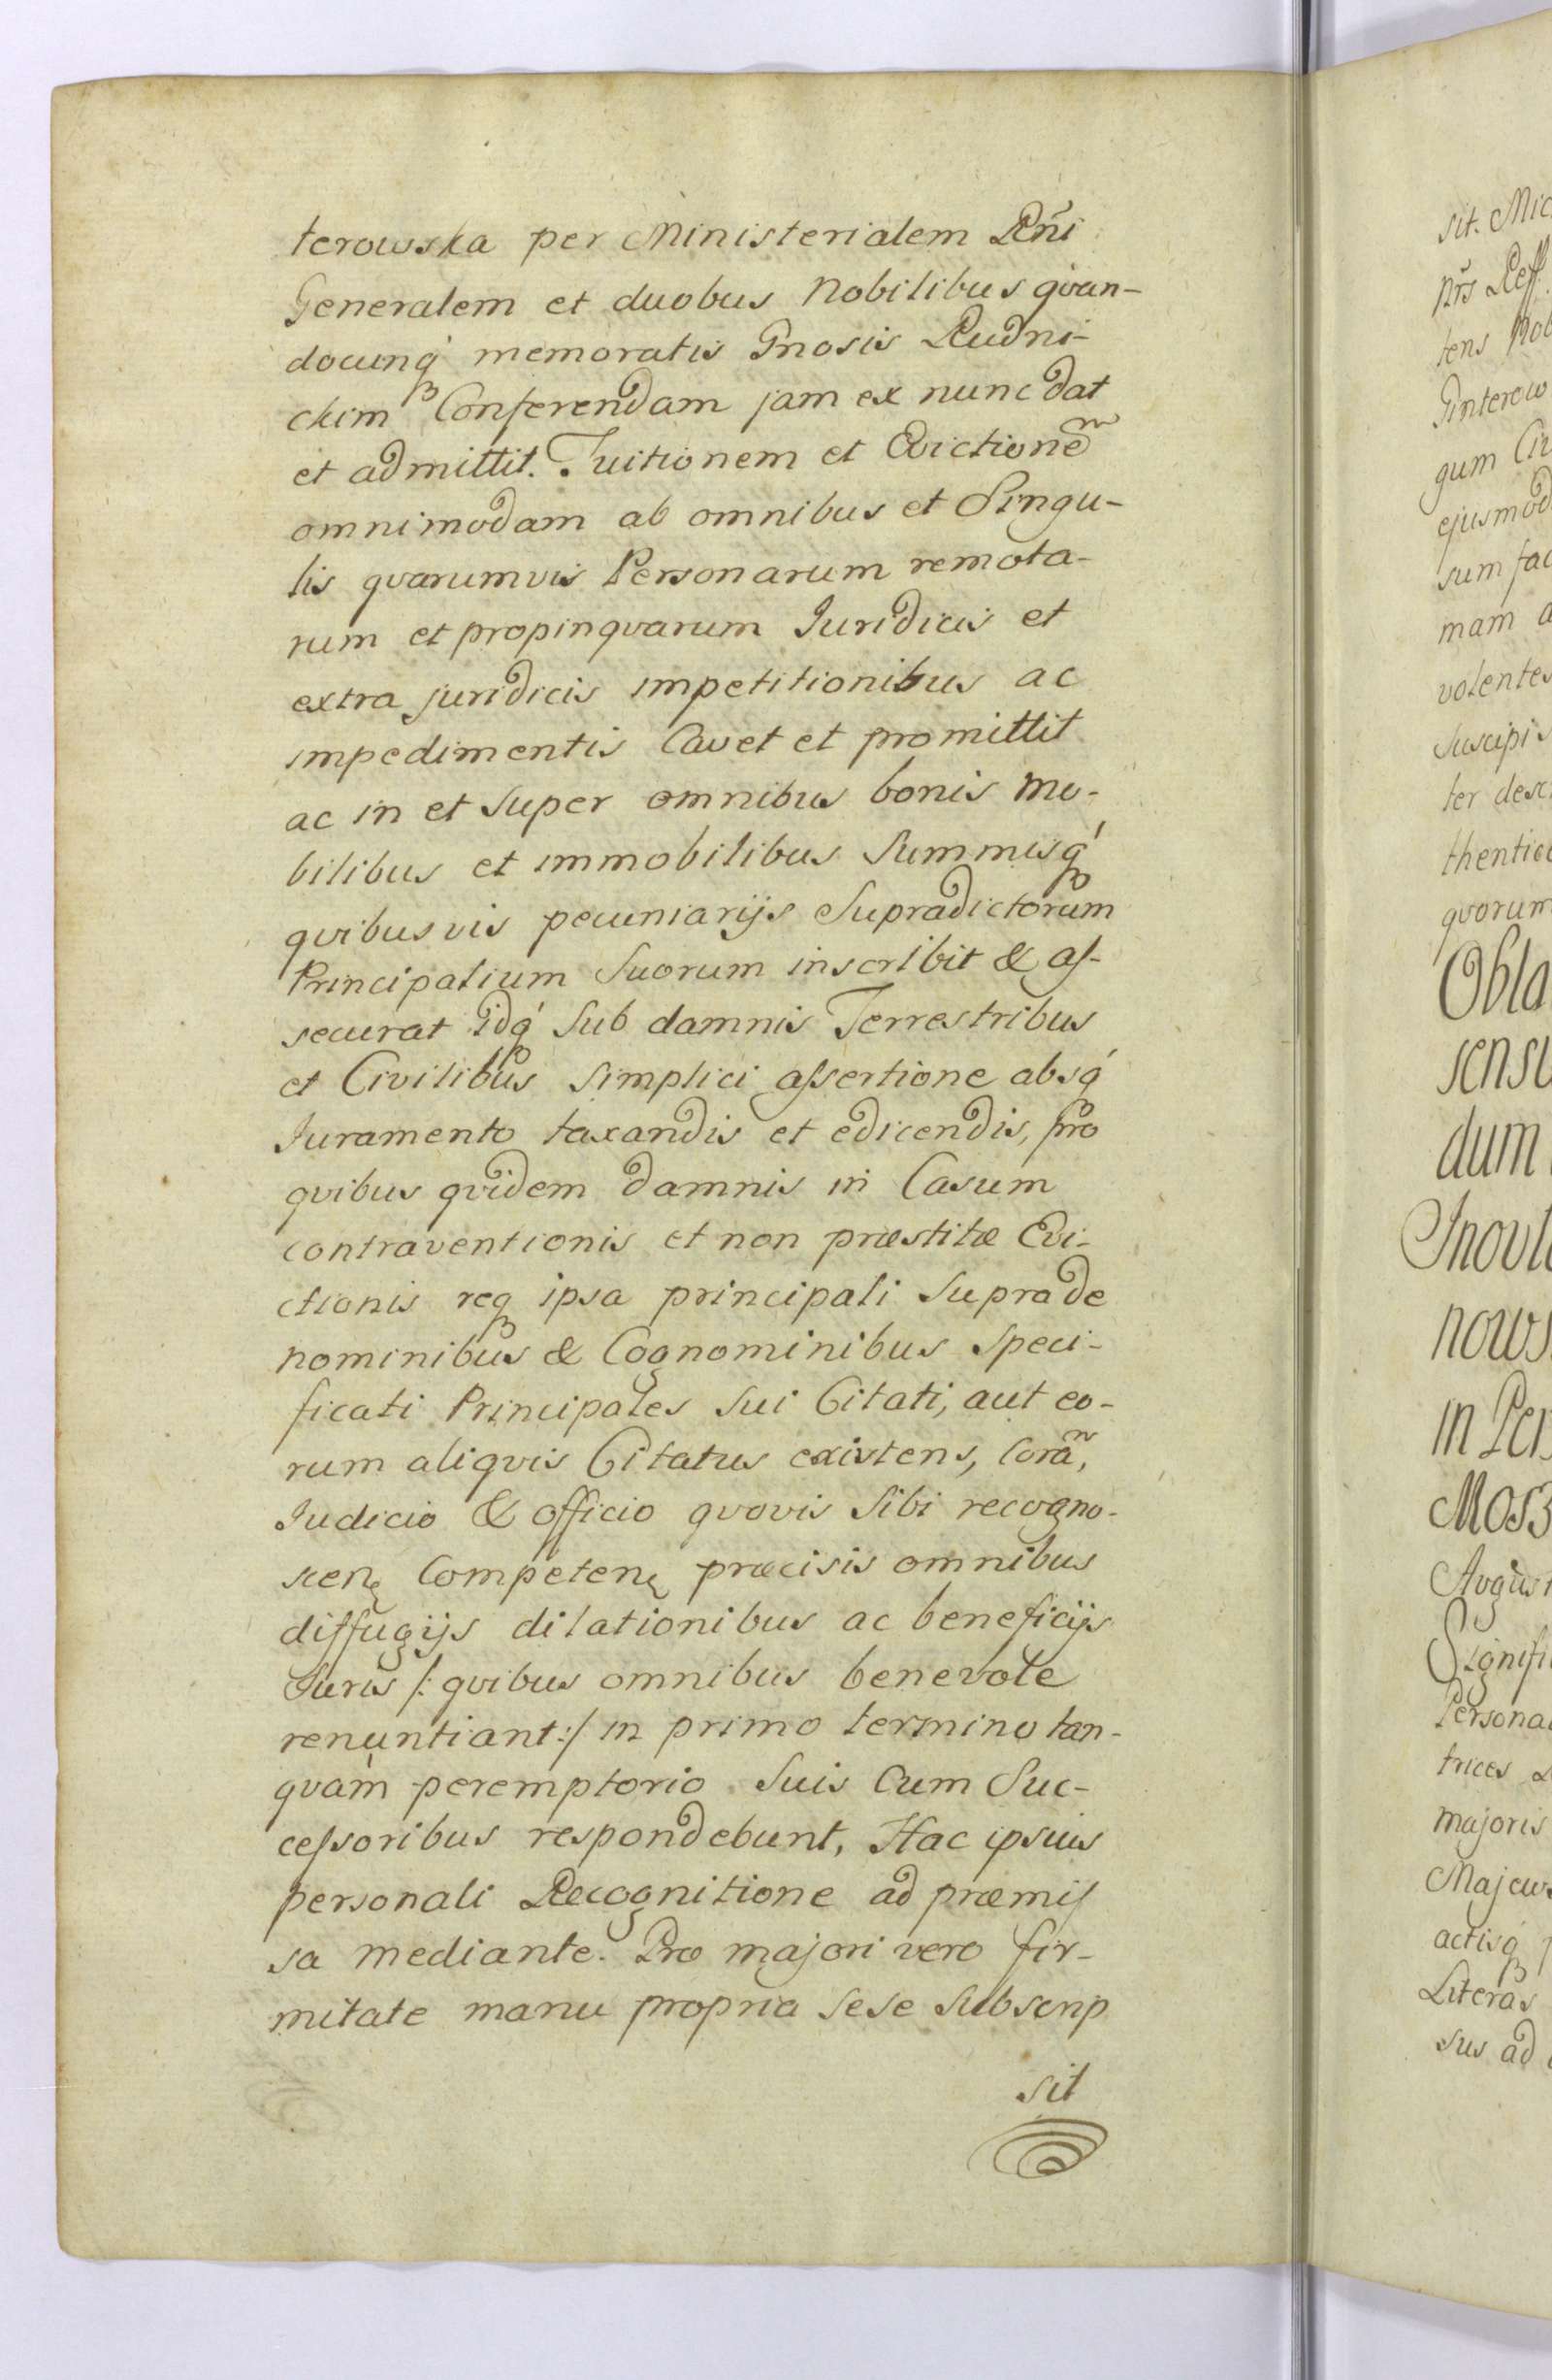 terowska per Ministerialem Rñi
Generalem et duobus Nobilibus qvan-
docunq́ memoratis Gnosis Rudni-
ckim Conferendam jam ex nunc dat
et admittit. Tuitionem et Evictionē
omnimodam ab omnibus et Singu-
lis qvarumvis Personarum remota-
rum et propinqvarum Juridicis et
extra juridicis impetitionibus ac
impedimentis Cavet et promittit
ac in et Super omnibus bonis Mo-
bilibus et immobilibus Summisq́
qvibusvis pecuniarijs Supradictorum
Principalium Suorum inscribit & aſ-
securat idq́ Sub damnis Terrestribus
et Civilibus Simplici aſsertione absq́
Juramento taxandis et edicendis, pro
qvibus qvidem damnis in Casum
contraventionis et non præstitæ Evi-
ctionis req ipsa principali Supra de
nominibus & Cognominibus Speci-
ficati Principales Sui Citati, aut eo-
rum aliqvis Citatus existens, Corã,
Judicio & Officio qvovis Sibi recogno-
scen Competen præcisis omnibus
diffugijs dilationibus ac beneficijs
Juris /: qvibus omnibus benevole
renuntiant :/ in primo termino tan-
qvam peremptorio Suis Cum Suc-
ceſsoribus respondebunt, Hac ipsius
personali Recognitione ad præmiſ
sa mediante. Pro majori vero fir-
mitate manu propria Sese Subscrip
sit
sit. Mic
ñrs Reff.
tens Nob
Pinterow
gum
ejusmod
sum fac
mam a
volentes
Suscipi
ter desc
thentic
qvorum
Obla
sensu
dum
Inovl
nows
in Per
Mosz
Avgust
Signifi
Persona
trices
majoris
Majew
actisq́
Literas
sus ad